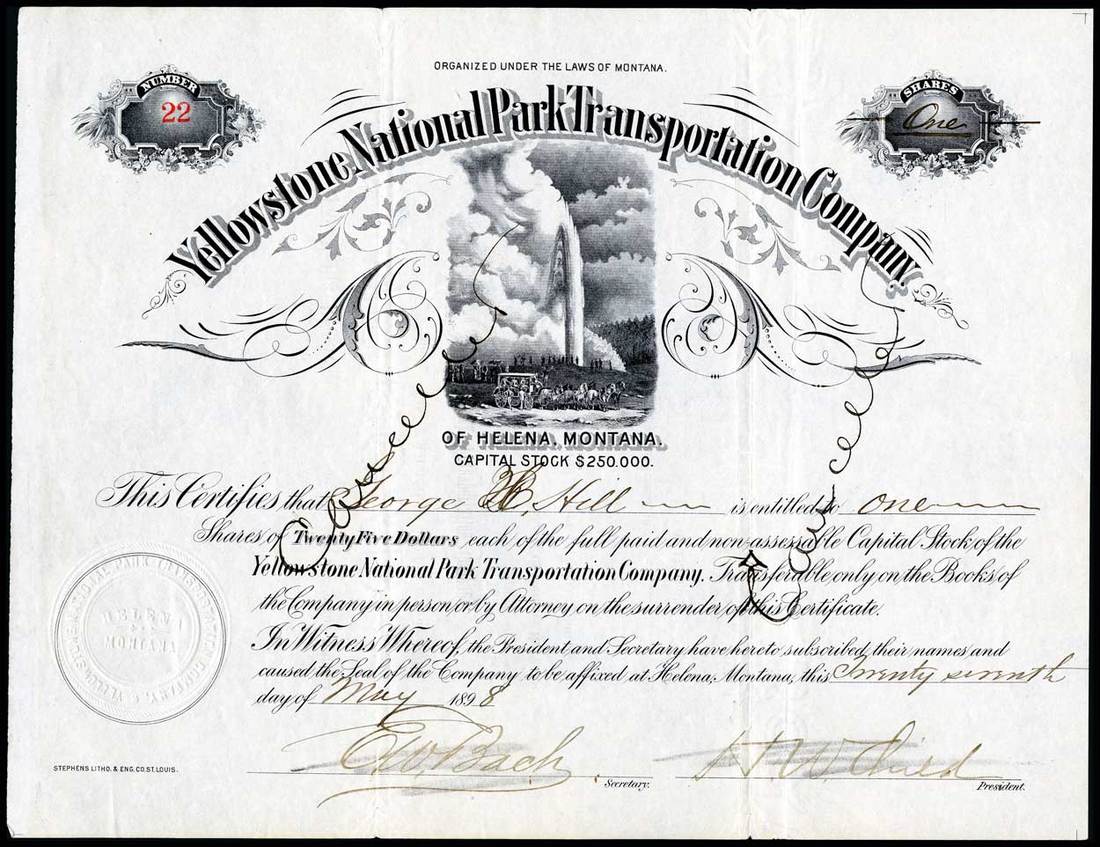 ORGANIZED UNDER THE LAWS OF MONTANA.
NUMBER
22
SHARES
One
Yellowstone National Park Transportation Company.
OF HELENA, MONTANA.
CAPITAL STOCK $250.000.
Cancelled
Cancelled
This Certifies that George H. Hill is entitled to one
Shares of Twenty Five Dollars each of the full paid and non-assessable Capital Stock of the
Yellowstone National Park Transportation Company. Transferable only on the Books of
the Company in person or by Attorney on the surrender of this Certificate.
In Witness Whereof, the President and Secretary have hereto subscribed their names and
caused the Seal of the Company to be affixed at Helena, Montana, this Twenty seventh
day of May 1898
YELLOWSTONE NATIONAL PARK TRANSPORTATION COMPANY
HELENA
MONTANA
E.W. Bach
Secretary.
H.W. Child
President.
STEPHENS LITHO. & ENG. CO. ST. LOUIS.